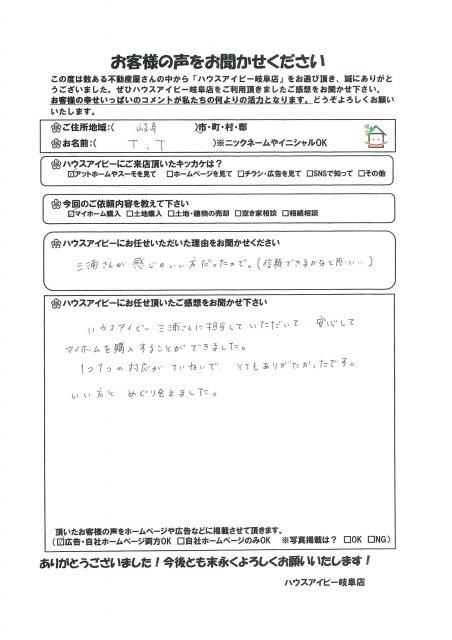 お客様の声をお聞かせください
この度は数ある不動産屋さんの中から「ハウスアイビー岐阜店」をお選び頂き、誠にありがと
うございました。ぜひハウスアイビー岐阜店をご利用頂きましたご感想をお聞かせ下さい。
お客様の幸せいっぱいのコメントが私たちの何よりの活力となります。どうぞよろしくお願い
いたします。
ご住所地域:( 岐阜 )市・町・村・郡
お名前:( T.T )※ニックネームやイニシャルOK
ハウスアイビーにご来店頂いたキッカケは?
☑アットホームやスーモを見て □ホームページを見て □チラシ・広告を見て □SNSで知って □その他
今回のご依頼内容を教えて下さい
☑マイホーム購入 □土地購入 □土地・建物の売却 □空き家相談 □相続相談
ハウスアイビーにお任せいただいた理由をお聞かせください
三浦さんが感じのいい方だったので。(信頼できるかなと思い…)
ハウスアイビーにお任せ頂いたご感想をお聞かせ下さい
ハウスアイビー 三浦さんに担当していただいて 安心して
マイホームを購入することができました。
1つ1つの対応がていねいで とてもありがたかったです。
いい方と めぐり会えました。
頂いたお客様の声をホームページや広告などに掲載させて頂きます。
(☑広告・自社ホームページ両方OK □自社ホームページのみOK ※写真掲載は? □OK □NG)
ありがとうございました!今後とも末永くよろしくお願いいたします!
ハウスアイビー岐阜店